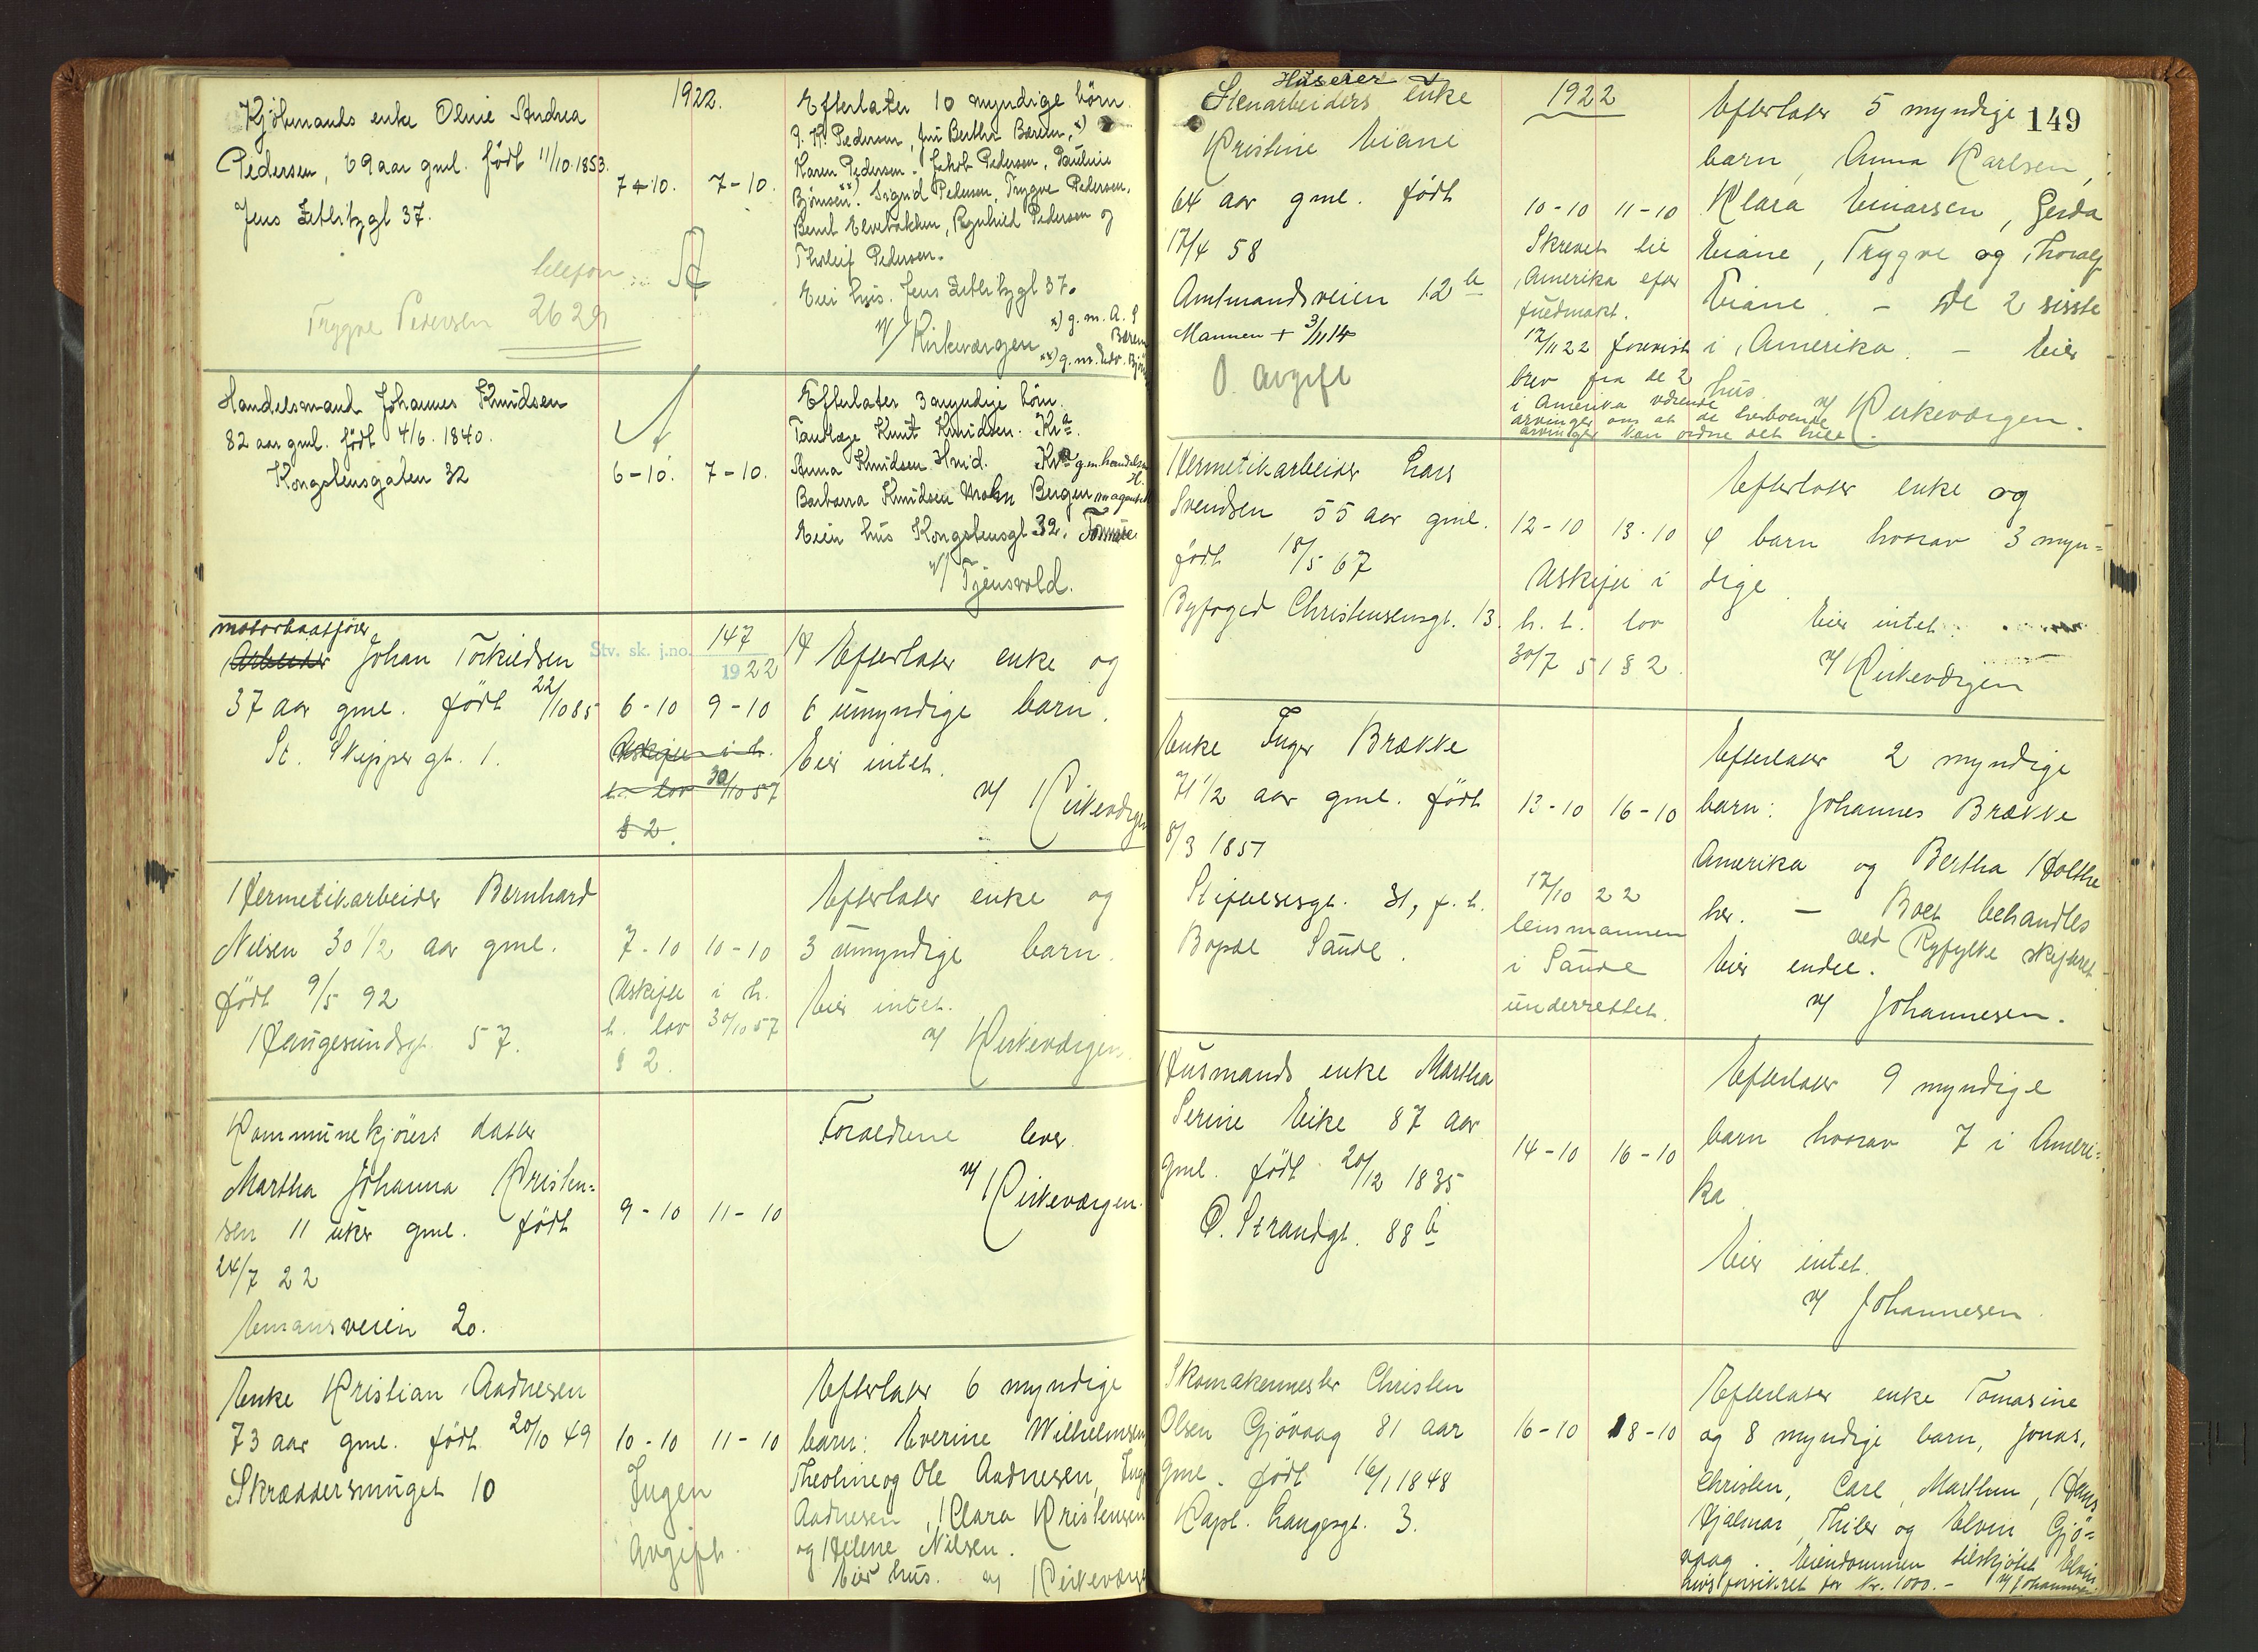 1922.
Kjöbmands enke Oline Andrea
Pedersen, 69 aar gml. född 11/10.1853.
Jens Zetlitzgt 37.
7-10. 7-10.
telefon
Trygve Pedersen 26 29
Efterlater 10 myndige börn.
P. K. Pedersen, fru Bertha Bærem, x)
Karen Pedersen. Jakob Pedersen, Pauline
Björnsen xx). Sigrid Pedersen, Trygve Pedersen,
Berit Elvebakken, Ragnhild Pedersen og
Tholeif Pedersen.
Eier hus. Jens Zetlitzgt 37.
v/ Kirkevergen
x) g. m. A. S
Bærem
xx) g. m. Edv. Bjö
Handelsmand Johannes Knudsen
82 aar gml. född 4/6. 1840.
Kongstensgaten 32
6-10. 7-10.
Efterlater 3 myndige börn.
Tandlæge Knut Knudsen. Kra.
Anna Knudsen Kra g.m. handels
Barbara Knudsen Mohn Bergen
Eier hus Kongstensgt 32.
v/ Tjensvold.
motorbaatförer
Arbeider Johan Torkildsen
37 aar gml. född 22/10 85
St. Skippergt. 1.
Stv. sk. j.no. 147
1922
6-10 9-10
Uskifte i h.
t. lov 30/10 57
§ 2.
Efterlater enke og
6 umyndige barn.
Eier intet.
v/ Kirkevergen
Hermetikarbeider Bernhard
Nilsen 30 1/2 aar gml.
född 9/5 92
Haugesundsgt. 57.
7-10 10-10
Uskifte i h.
t. lov 30/10 57
§ 2.
Efterlater enke og
3 umyndige barn.
Eier intet.
v/ Kirkevergen.
Kommunekjörers datter
Martha Johanna Kristen=
sen 11 uker gml. född
24/7 22
veien 20.
9-10 11-10
Forældrene lever.
v/ Kirkevergen.
Enke Kristian Aadnesen
73 aar gml. född 20/10 49
Skræddersmuget 10
10-10 11-10
Ingen
Avgift.
Efterlater 6 myndige
barn: Everine Wilhelmsen
Theoline og Ole Aadnesen, Inga
Aadnesen, Klara Kristensen
og Helene Nilsen.
Eier hus. v/ Kirkeverge
149
1922
Huseier
Stenarbeiders enke
Kristine Eiane
64 aar gml. född
17/4 58
Amtmandsveien 12 b
Mannen + 3/11 14
O. avgift
10-10 11-10
Skrevet til
Amerika efter
fuldmakt.
17/11 22 forevist
brev fra de 2
i Amerika værende
arvinger om at de herboende
arvinger kan ordne det hele.
Efterlater 5 myndige
barn, Anna Karlsen,
Klara Einarsen, Gerda
Eiane, Trygve og Thoralf
Eiane. - De 2 sisste
i Amerika. - Eier
hus.
v/ Kirkevergen.
Hermetikarbeider Lars
Svendsen 55 aar gml.
född 18/5 67
Byfoged Christensensgt. 13.
12-10 13-10
Uskifte i
h. t. lov
30/7 51 § 2.
Efterlater enke og
4 barn hvorav 3 myn=
dige
Eier intet.
v/ Kirkevergen
Enke Inger Brække
71 1/2 aar gml. född
8/3 1851
Stiftelsesgt. 31, f. t.
Bopæl Saude.
12-10 16-10
17/10 22
lensmannen
i Saude
underrettet.
Efterlater 2 myndige
barn: Johannes Brække
Amerika og Bertha Holthe
her. - Boet behandles
ved Ryfylke skifteret
Eier endel.
v/ Johannesen.
Husmands enke Martha
Serine Eike 87 aar
gml. född 20/12 1835
Ö. Strandgt. 88 b
14-10 16-10
Efterlater 9 myndige
barn hvorav 7 i Ameri=
ka
Eier intet.
v/ Johannesen.
Skomakermester Christen
Olsen Gjövaag 81 aar
gml. född 16/1 1848
Kapt. Langesgt. 3.
16-10 18-10
Efterlater enke Tomasine
og 8 myndige barn, Jonas,
Christen, Carl, Marthin, Hans
Hjalmar, Thiler og Elvin Gjö=
vaag. Eiendommen tilskjötet Elvin
forsikret for Kr. 1000.- v/ Johannesen